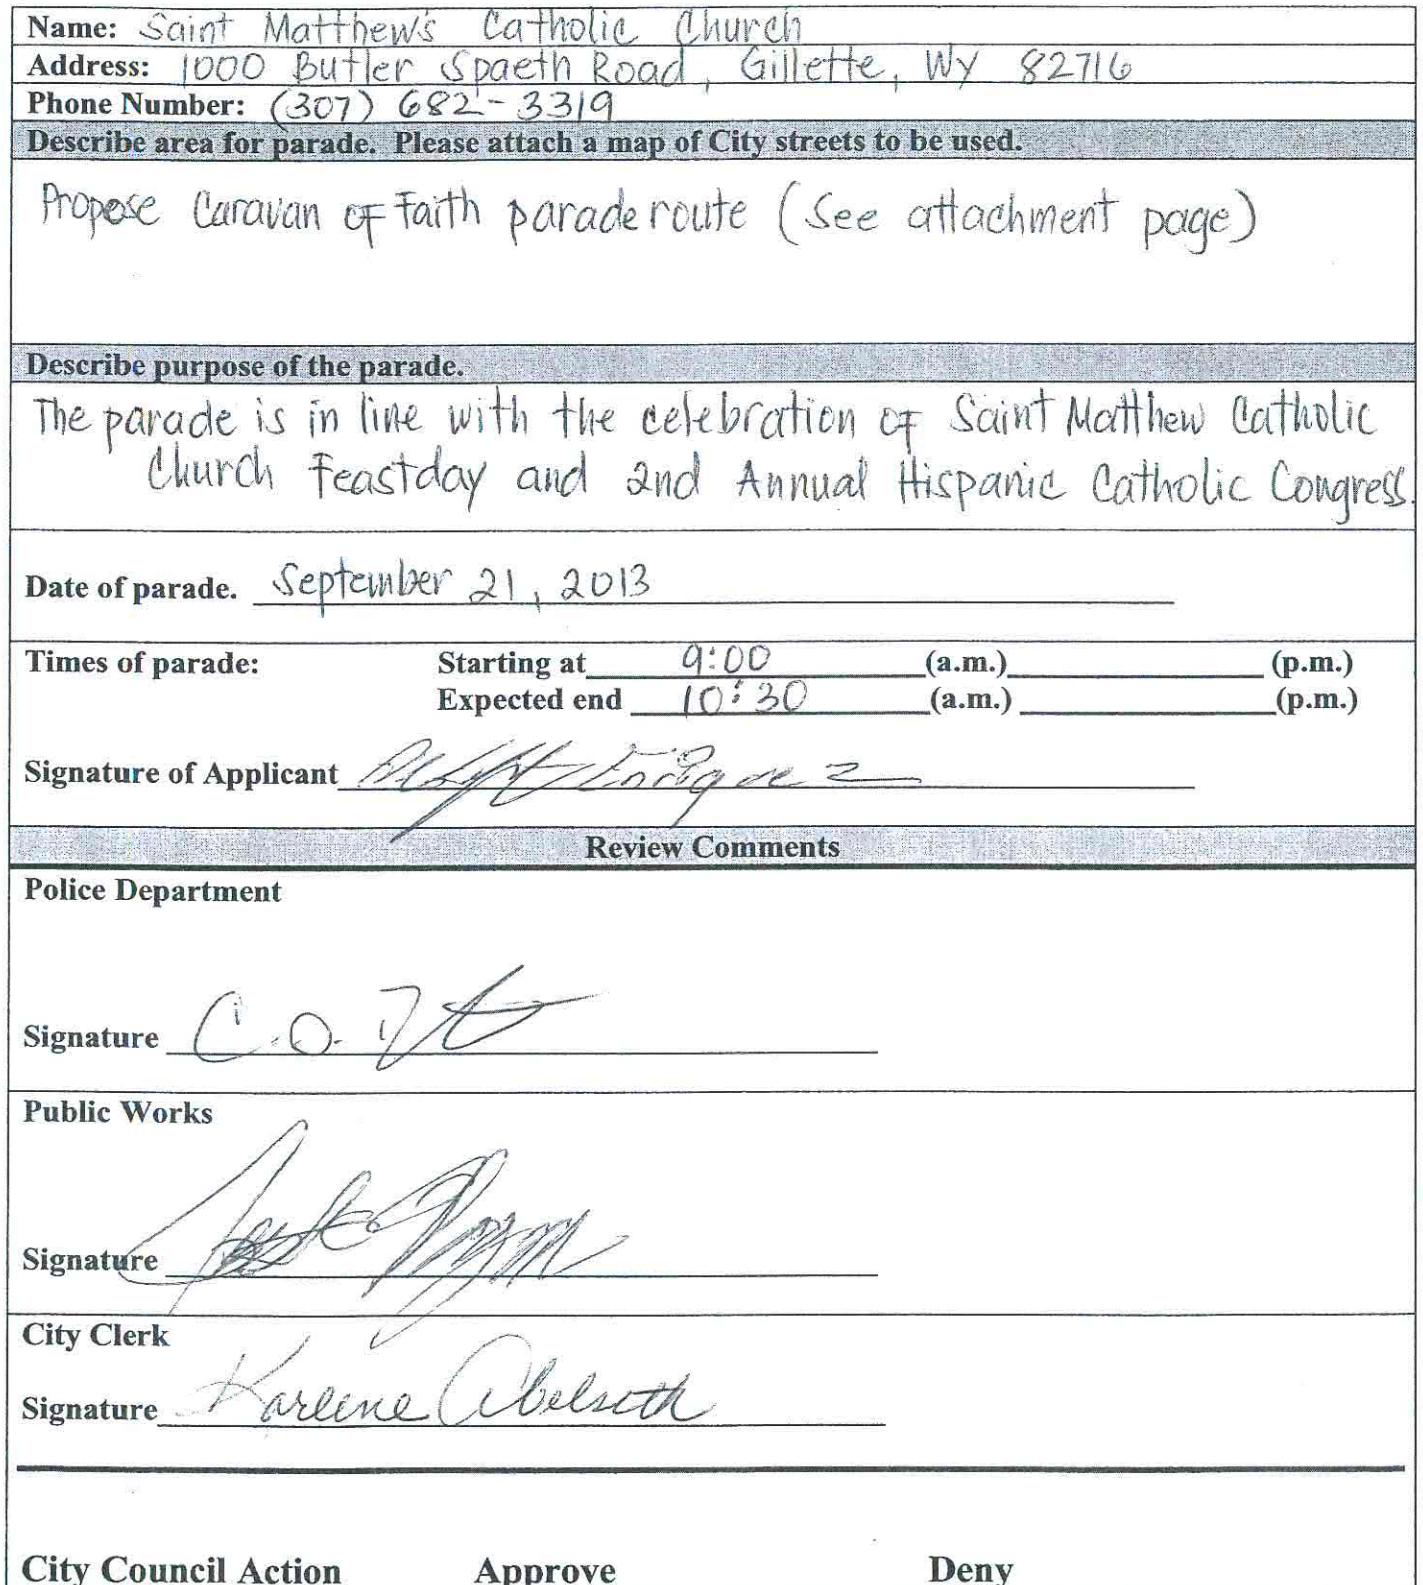 Name: Saint Matthew's Catholic Church
Address: 1000 Butler Spaeth Road, Gillette, Wy 82716
Phone Number: (307) 682-3319
Describe area for parade. Please attach a map of City streets to be used.
Propose Caravan of Faith parade route (See attachment page)
Describe purpose of the parade.
The parade is in line with the celebration of Saint Matthew Catholic
Church Feastday and 2nd Annual Hispanic Catholic Congress.
Date of parade. September 21, 2013
Times of parade: Starting at 9:00 (a.m.) (p.m.)
Expected end 10:30 (a.m.) (p.m.)
Signature of Applicant Enriquez
Review Comments
Police Department
Signature
Public Works
Signature
City Clerk
Signature Karlene Abelseth
City Council Action Approve Deny